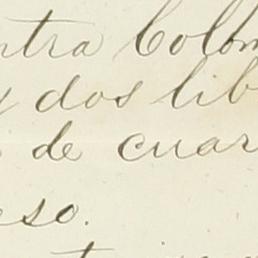 ntra Colom
y dos lib
de cuar
eso.